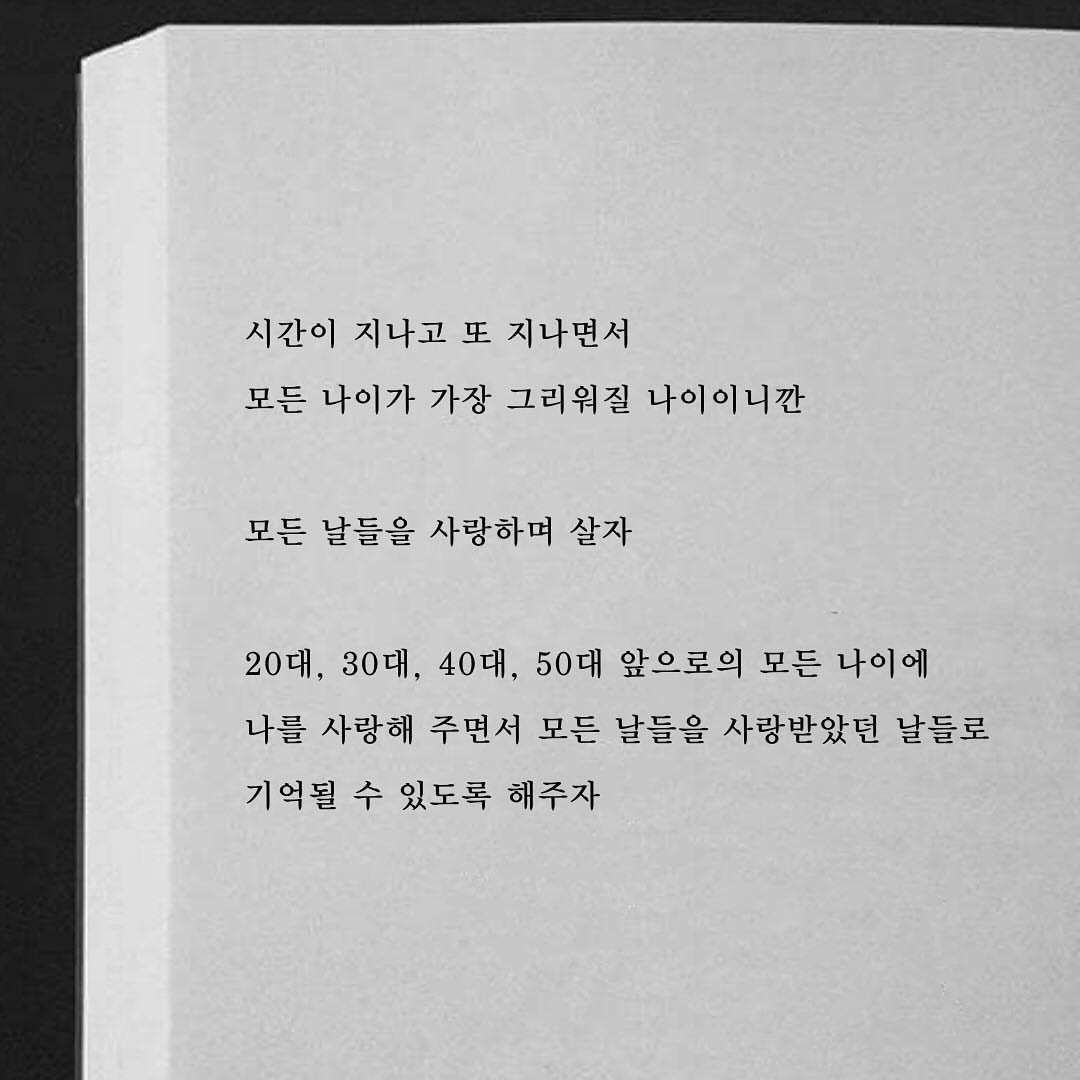 시간이 지나고 또 지나면서
모든 나이가 가장 그리워질 나이이니깐
모든 날들을 사랑하며 살자
20대, 30대, 40대, 50대 앞으로의 모든 나이에
나를 사랑해 주면서 모든 날들을 사랑받았던 날들로
기억될 수 있도록 해주자